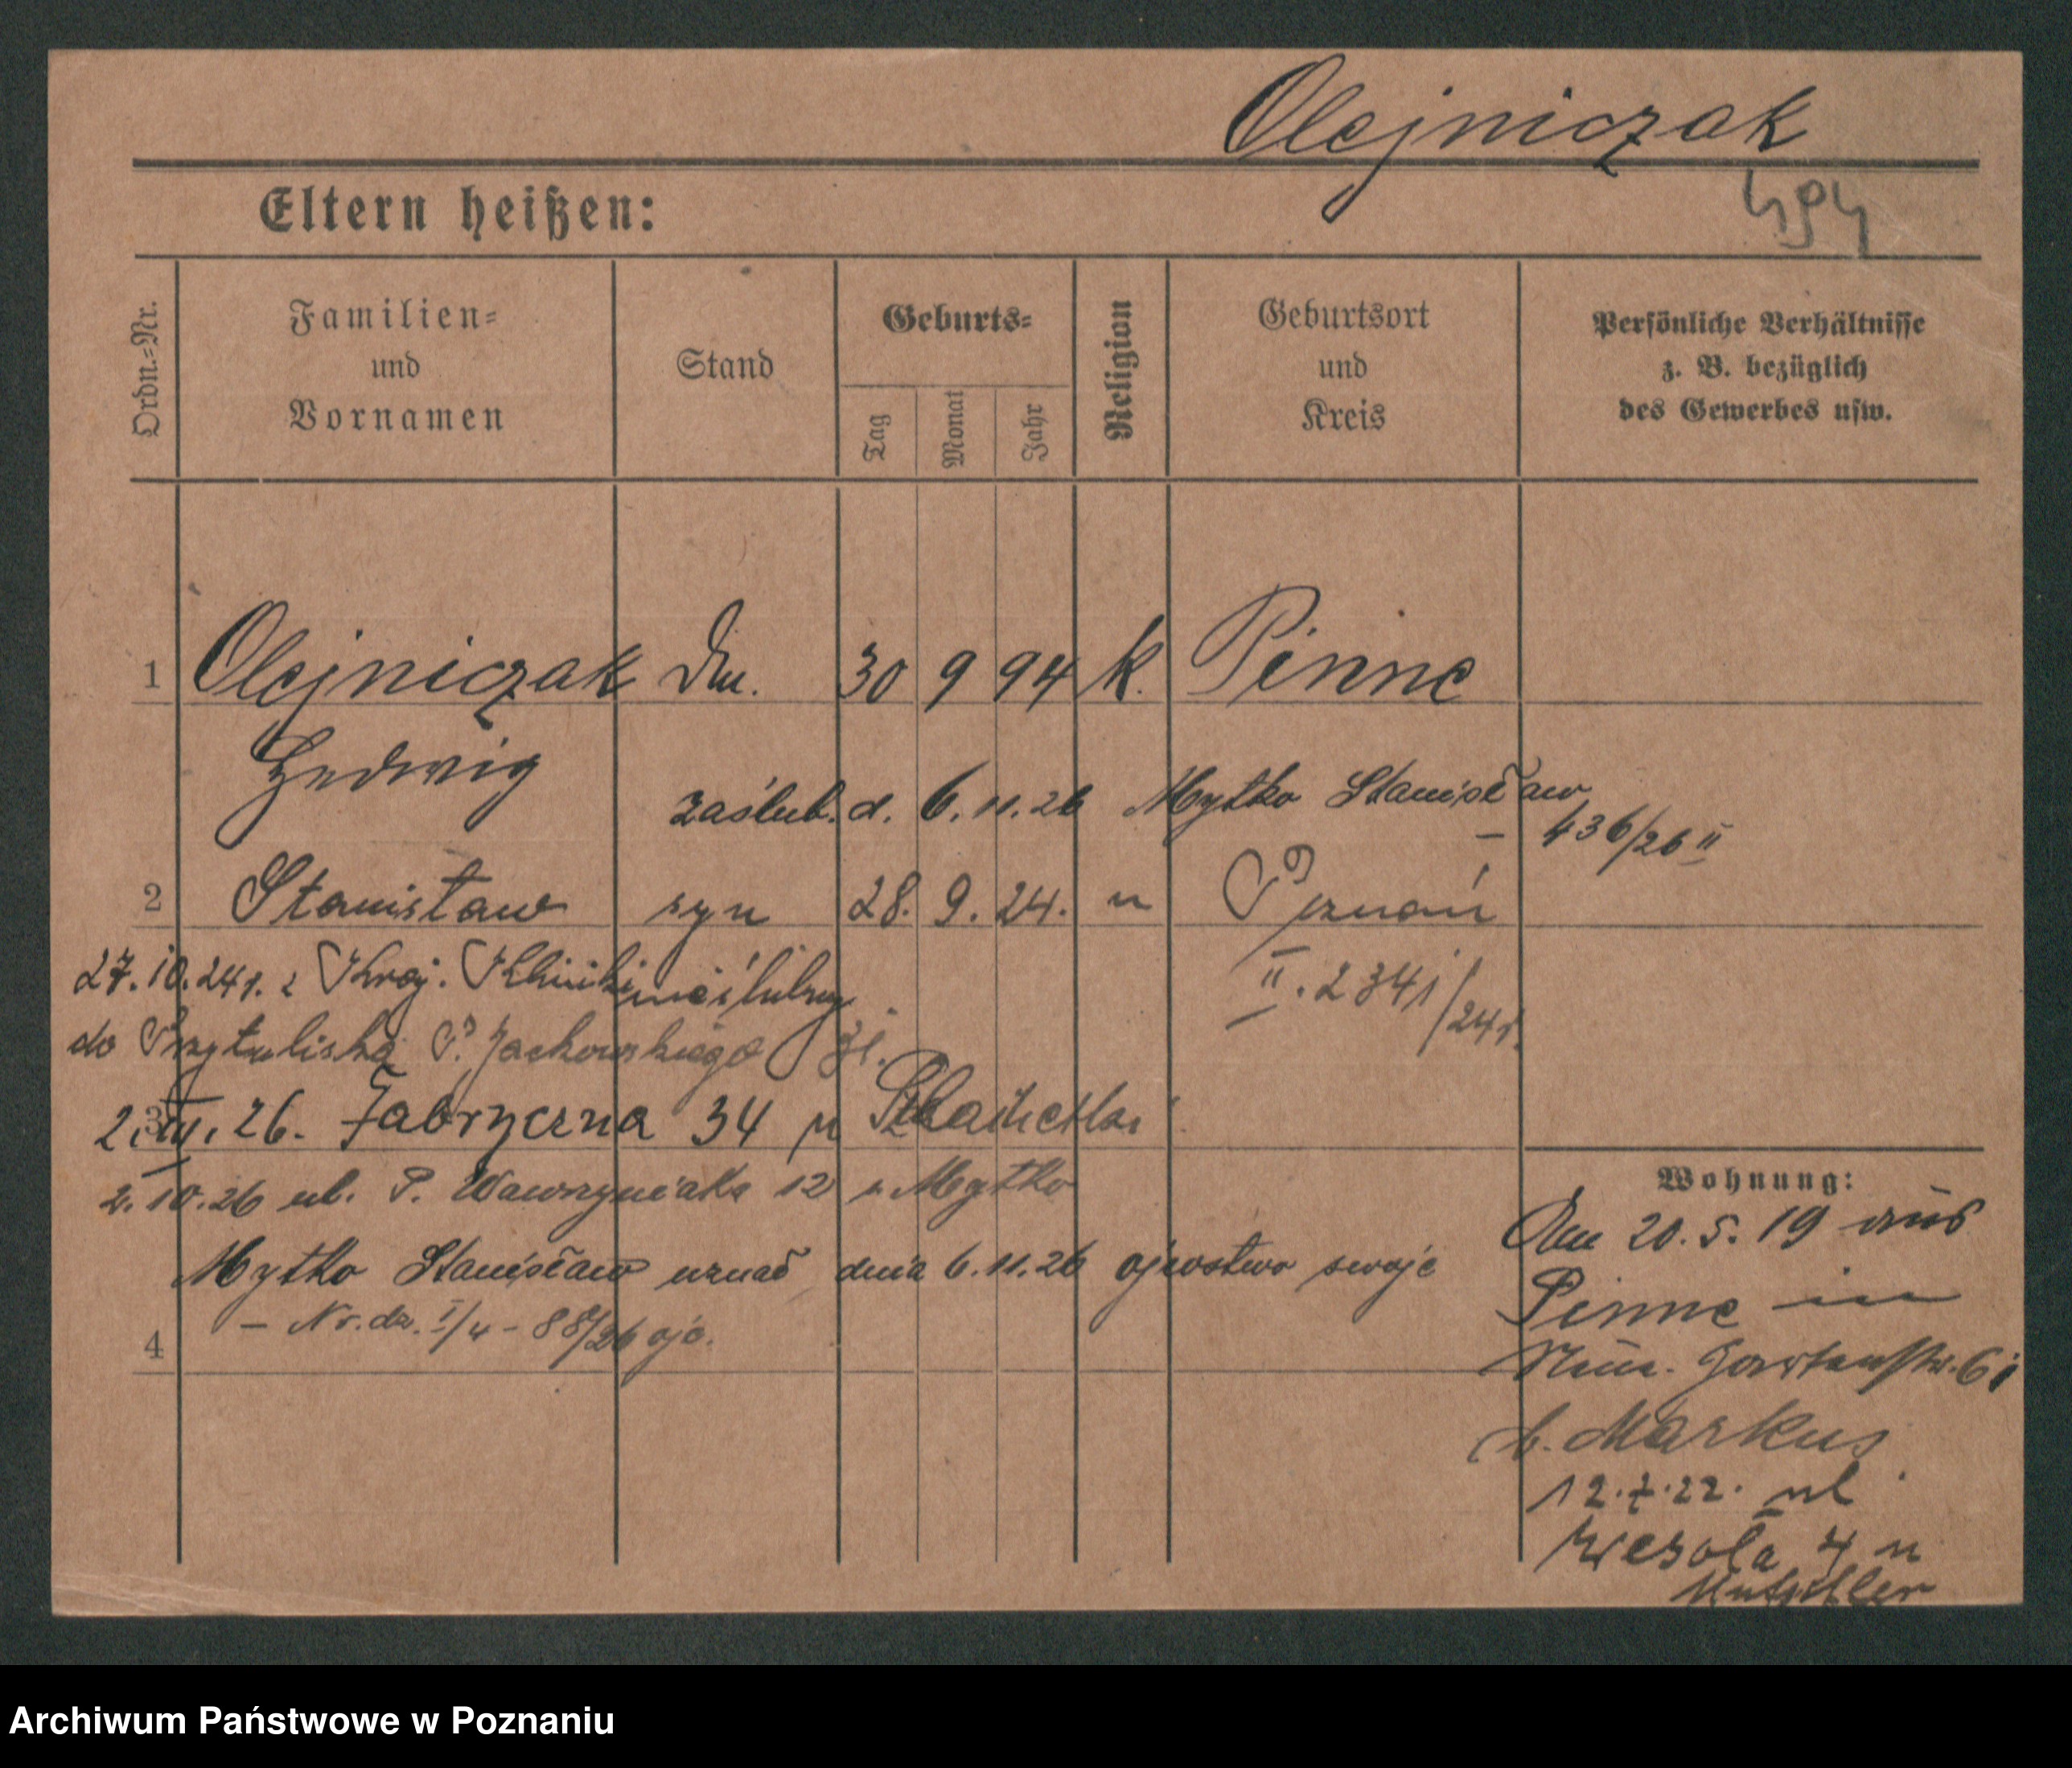 Olejniczak
494
Eltern heißen:
Ordn.-Nr.
Familien-
und
Vornamen
Stand
Geburts-
Tag
Monat
Jahr
Religion
Geburtsort
und
Kreis
Persönliche Verhältnisse
z. B. bezüglich
des Gewerbes usw.
1 Olejniczak 30 9 94 k. Pinne
Hedwig
zaślub. d. 6.11.26 Mytko Stanisław
— 436/26 II
2 Stanisław syn 28. 9. 24. Poznań
27.10.24 r. z Kraj. Kliniki
II. 2341/24 r.
do Przytuliska Jackowskiego
3
26. Fabryczna 34
2.10.26 ul. P. Wawrzyniaka 12 Mytko
Mytko Stanisław uznał dnia 6.11.26 ojcostwo swoje
— Nr. dz. I/4 - 88/26 ojc.
4
Wohnung:
Am 20.5.19 aus
Pinne in
Gartenstr. 6
b. Markus
12.7.22. ul
Wesoła 4 u